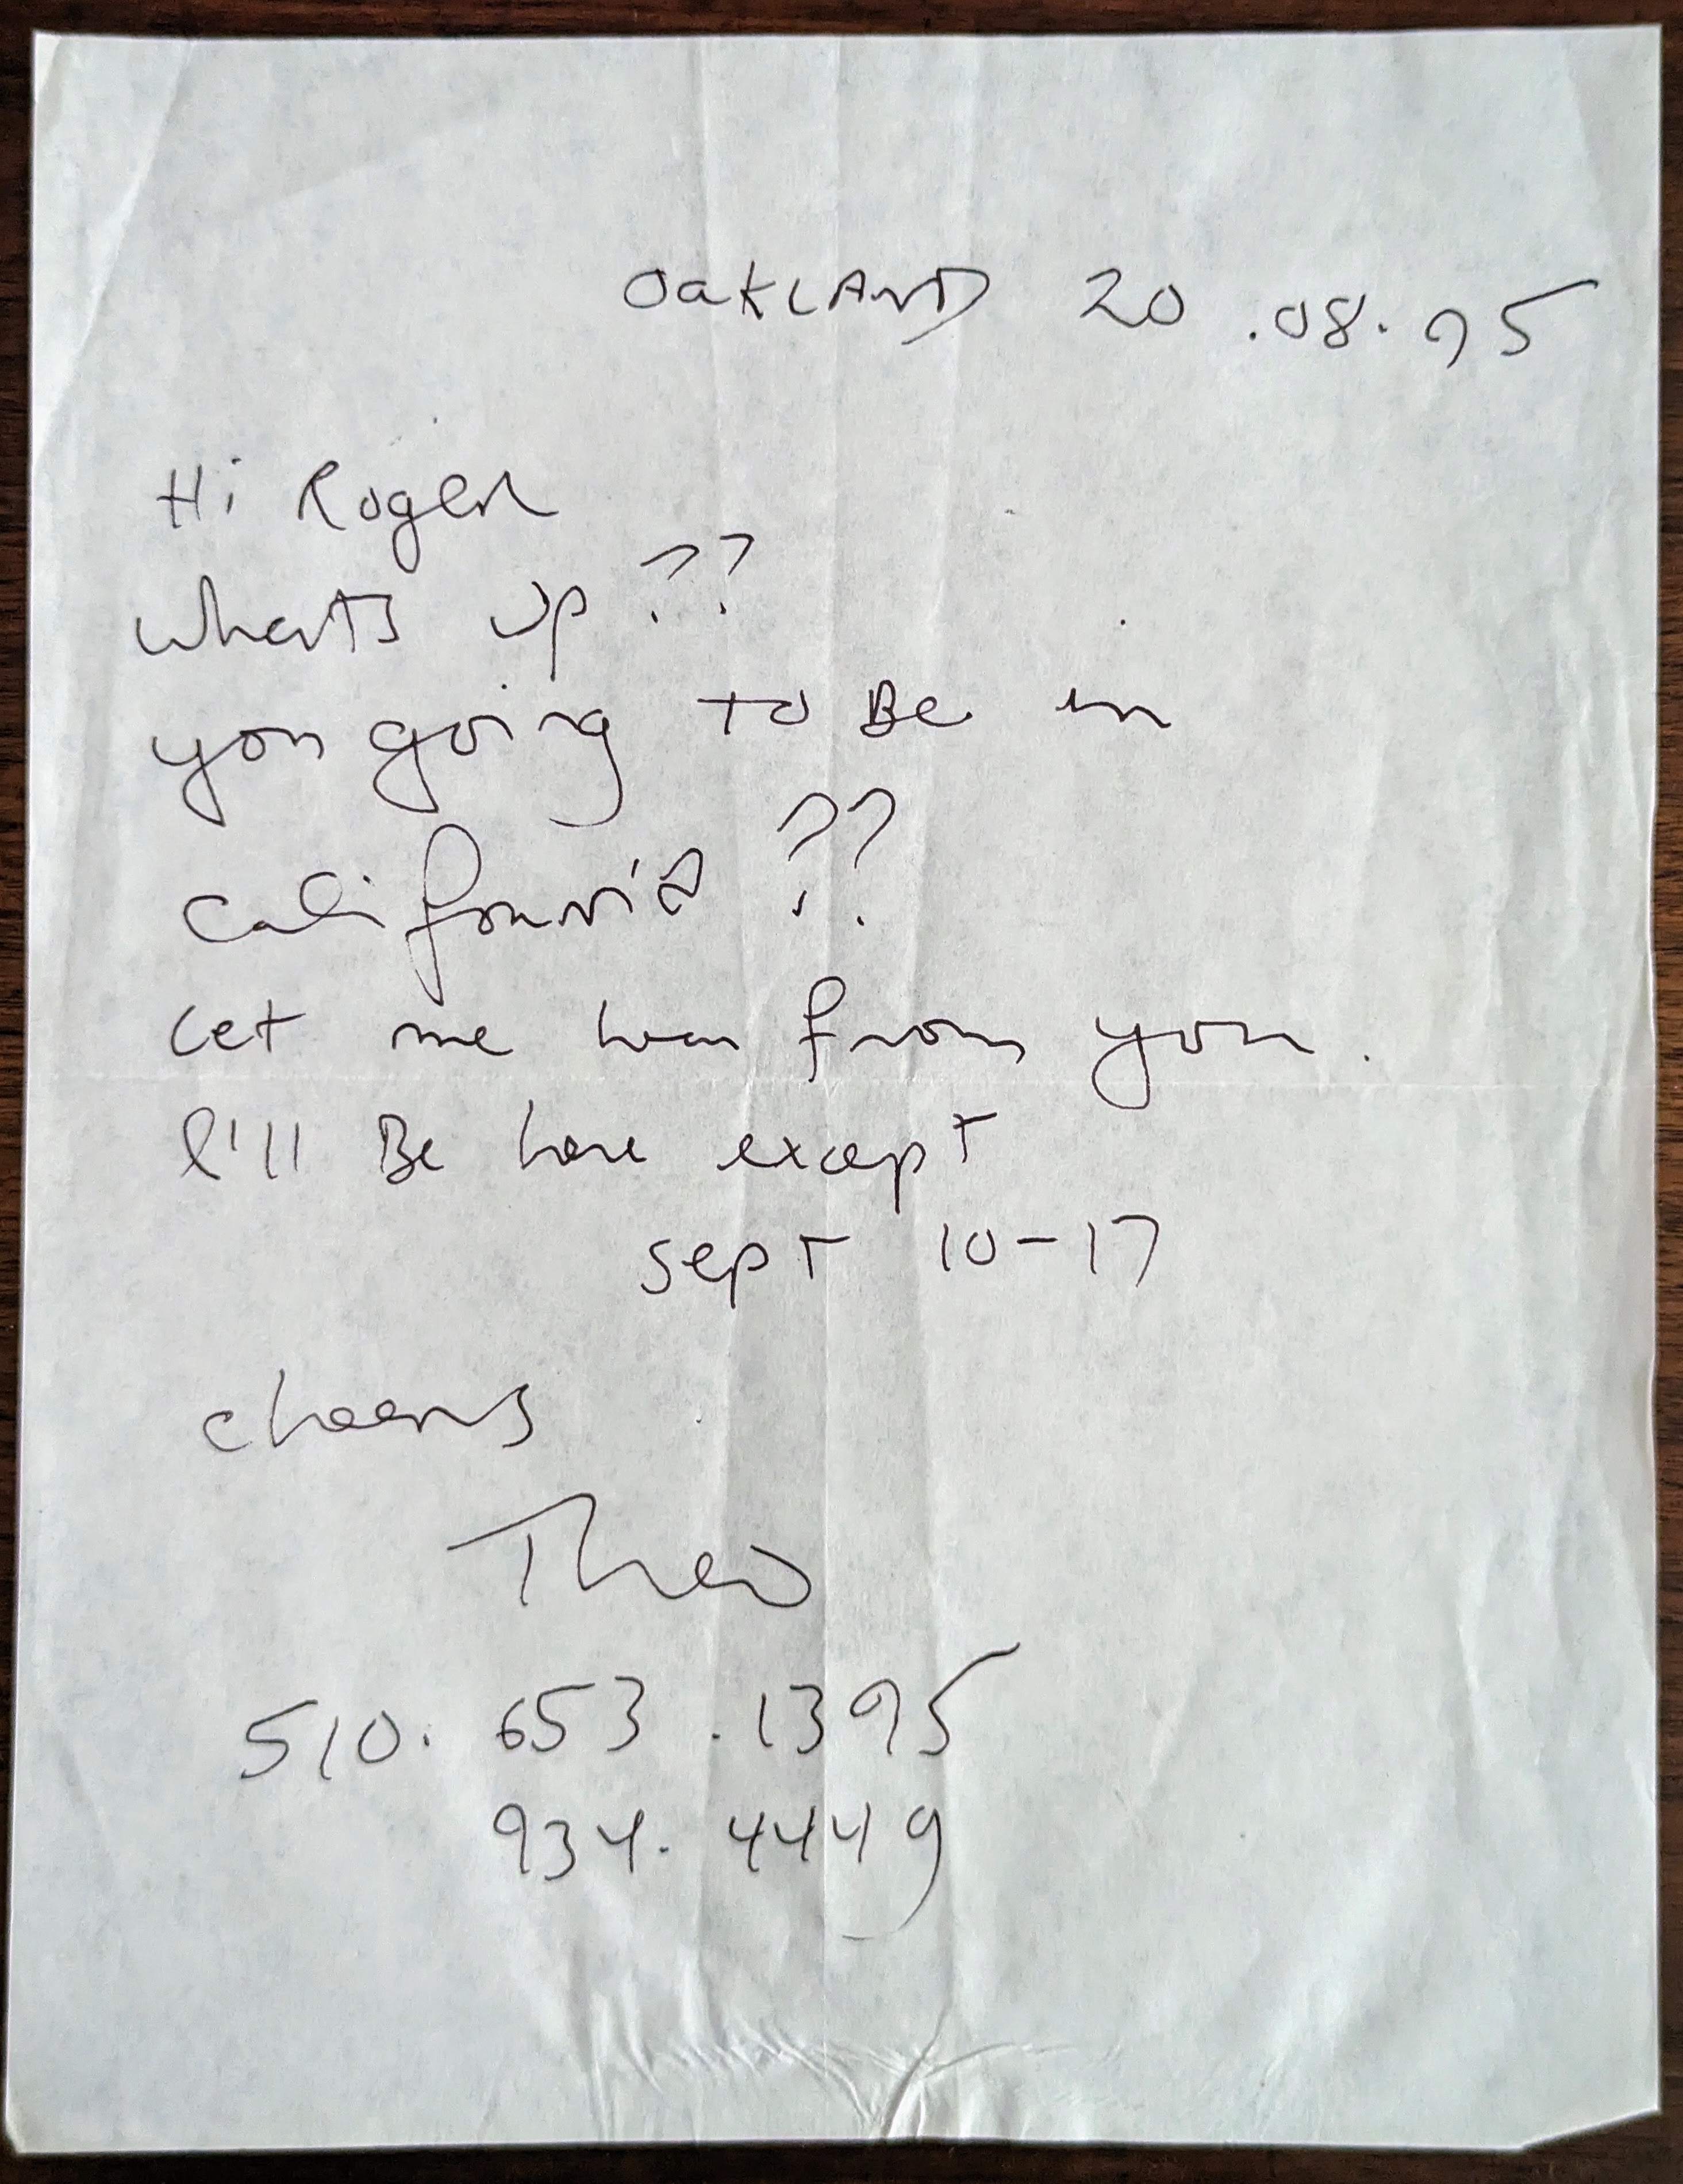 Oakland 20.08.95
Hi Roger
whats up ??
you going to Be in
california ??
let me hear from you.
I'll Be here except
sept 10-17
cheers
Theo
510. 653 .1395
934. 4449